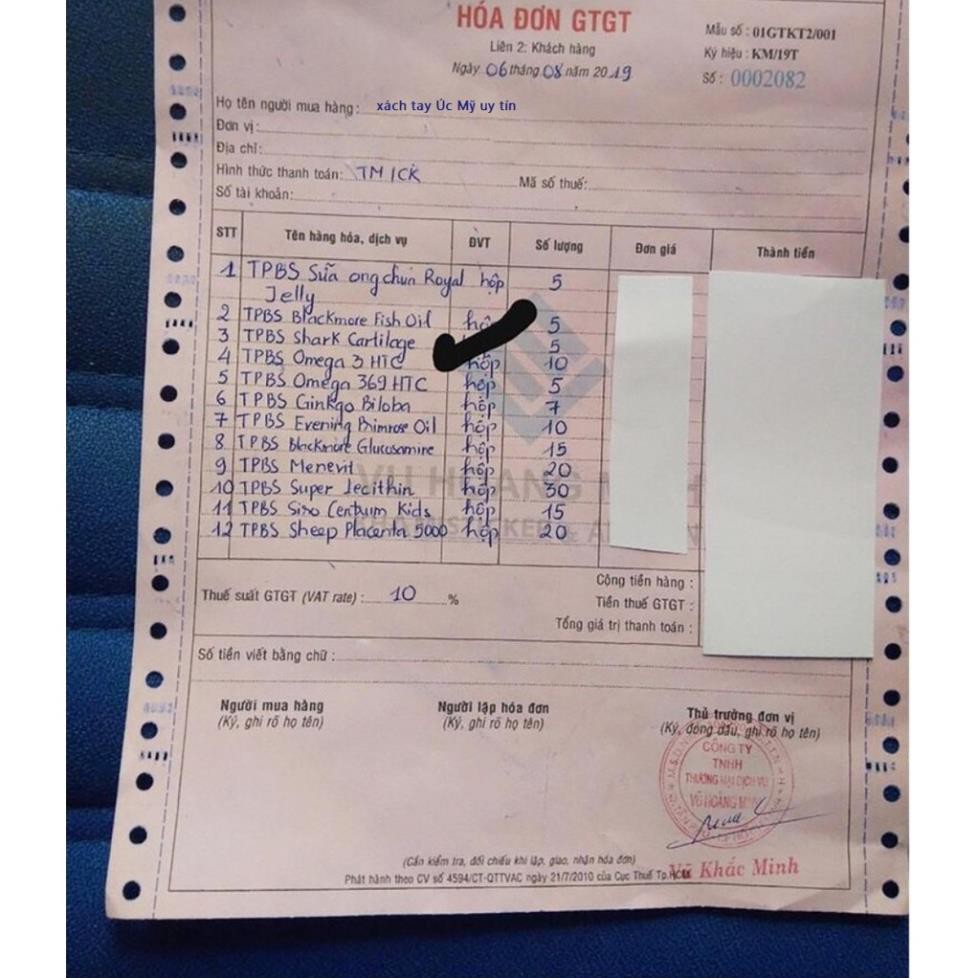 HÓA ĐƠN GTGT
Liên 2: Khách hàng
Ngày 06 tháng 08 năm 2019
Mẫu số : 01GTKT2/001
Ký hiệu : KM/19T
Số : 0002082
Họ tên người mua hàng : xách tay Úc Mỹ uy tín
Đơn vị :
Địa chỉ:
Hình thức thanh toán: TM/CK Mã số thuế:
Số tài khoản:
STT Tên hàng hóa, dịch vụ ĐVT Số lượng Đơn giá Thành tiền
1 TPBS Sữa ong chúa Royal hộp 5
Jelly
2 TPBS Blackmore Fish Oil hộ 5
3 TPBS Shark Cartilage 5
4 TPBS Omega 3 HTC hộp 10
5 TPBS Omega 369 HTC hộp 5
6 TPBS Ginkgo Biloba hộp 7
7 TPBS Evening Primrose Oil hộp 10
8 TPBS blackmore Glucosamine hộp 15
9 TPBS Menevit hộp 20
10 TPBS Super lecithin hộp 30
11 TPBS Siro Centum Kids hộp 15
12 TPBS Sheep Placenta 5000 hộp 20
VU HOANG M
Cộng tiền hàng :
Thuế suất GTGT (VAT rate) : 10 % Tiền thuế GTGT :
Tổng giá trị thanh toán :
Số tiền viết bằng chữ :
Người mua hàng Người lập hóa đơn Thủ trưởng đơn vị
(Ký, ghi rõ họ tên) (Ký, ghi rõ họ tên) (Ký, đóng dấu, ghi rõ họ tên)
CÔNG TY
TNHH
THƯƠNG MẠI DỊCH VỤ
VŨ HOÀNG MINH
(Cần kiểm tra, đối chiếu khi lập, giao, nhận hóa đơn)
Vũ Khắc Minh
Phát hành theo CV số 4594/CT-QTTVAC ngày 21/7/2010 của Cục Thuế Tp.HCM